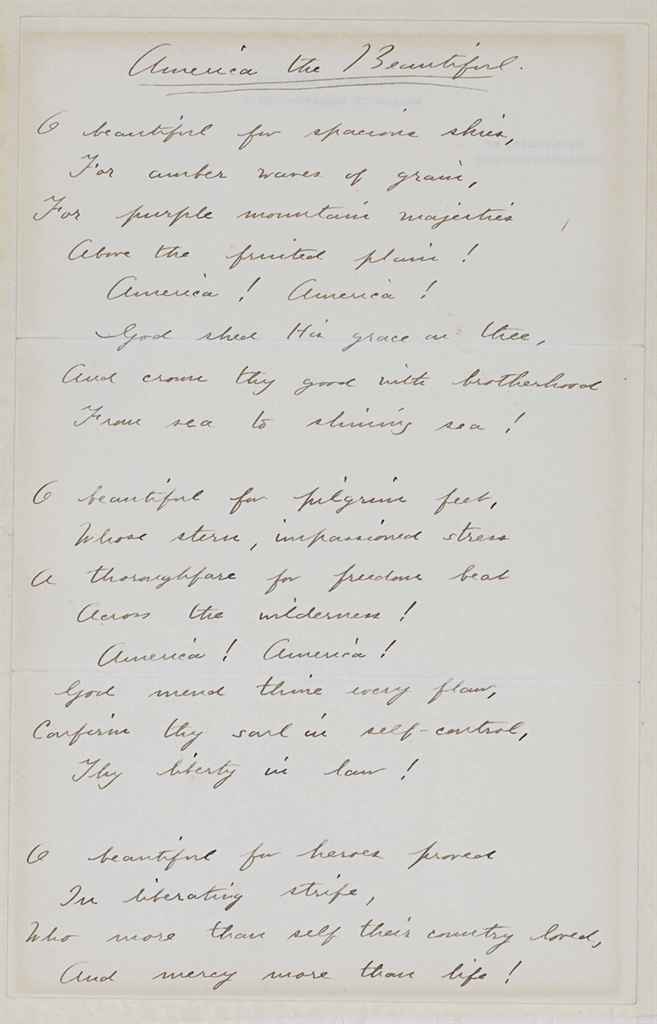 America the Beautiful.
O beautiful for spacious skies,
For amber waves of grain,
For purple mountain majesties
Above the fruited plain!
America! America!
God shed His grace on thee,
And crown thy good with brotherhood
From sea to shining sea!
O beautiful for pilgrim feet,
Whose stern, impassioned stress
A thoroughfare for freedom beat
Across the wilderness!
America! America!
God mend thine every flaw,
Confirm thy soul in self-control,
Thy liberty in law!
O beautiful for heroes proved
In liberating strife,
Who more than self their country loved,
And mercy more than life!